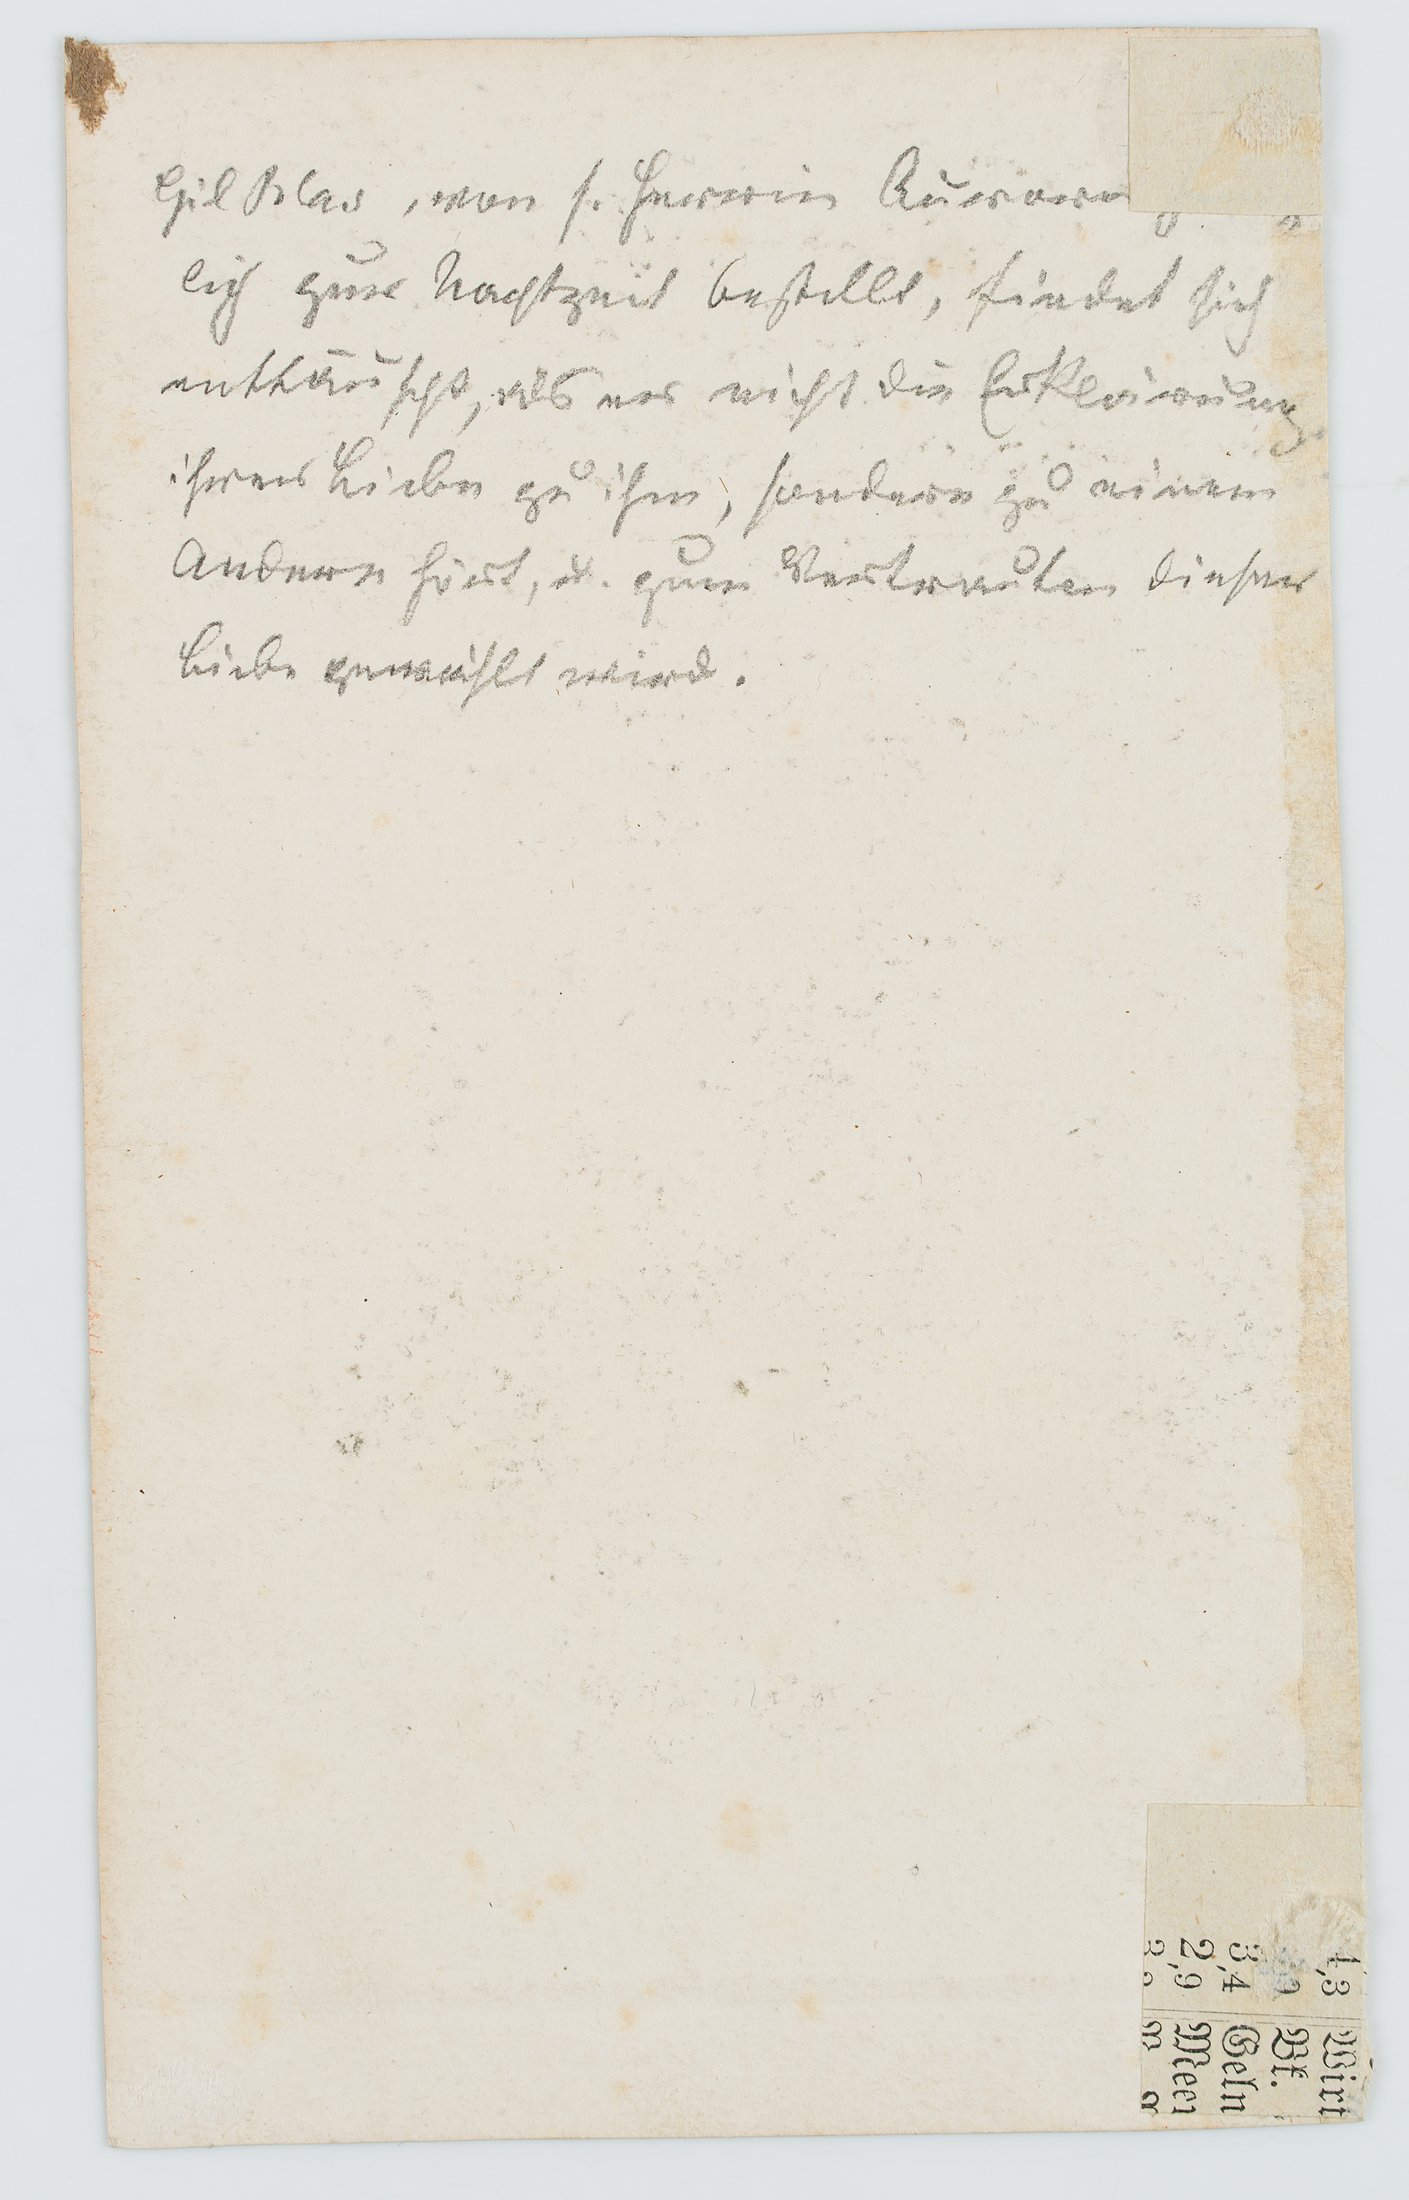 Gil Blas, von s. Herrin Aurora
lich zur Nachtzeit bestellt, findet sich
enttäuscht, als er nicht die Erklärung
ihrer Liebe zu ihm, sondern zu einem
Andern hört, u. zum Vertrauten dieser
Liebe gewählt wird.
4,3 Wirt
Bf.
3,4 Geln
2,9 Meer